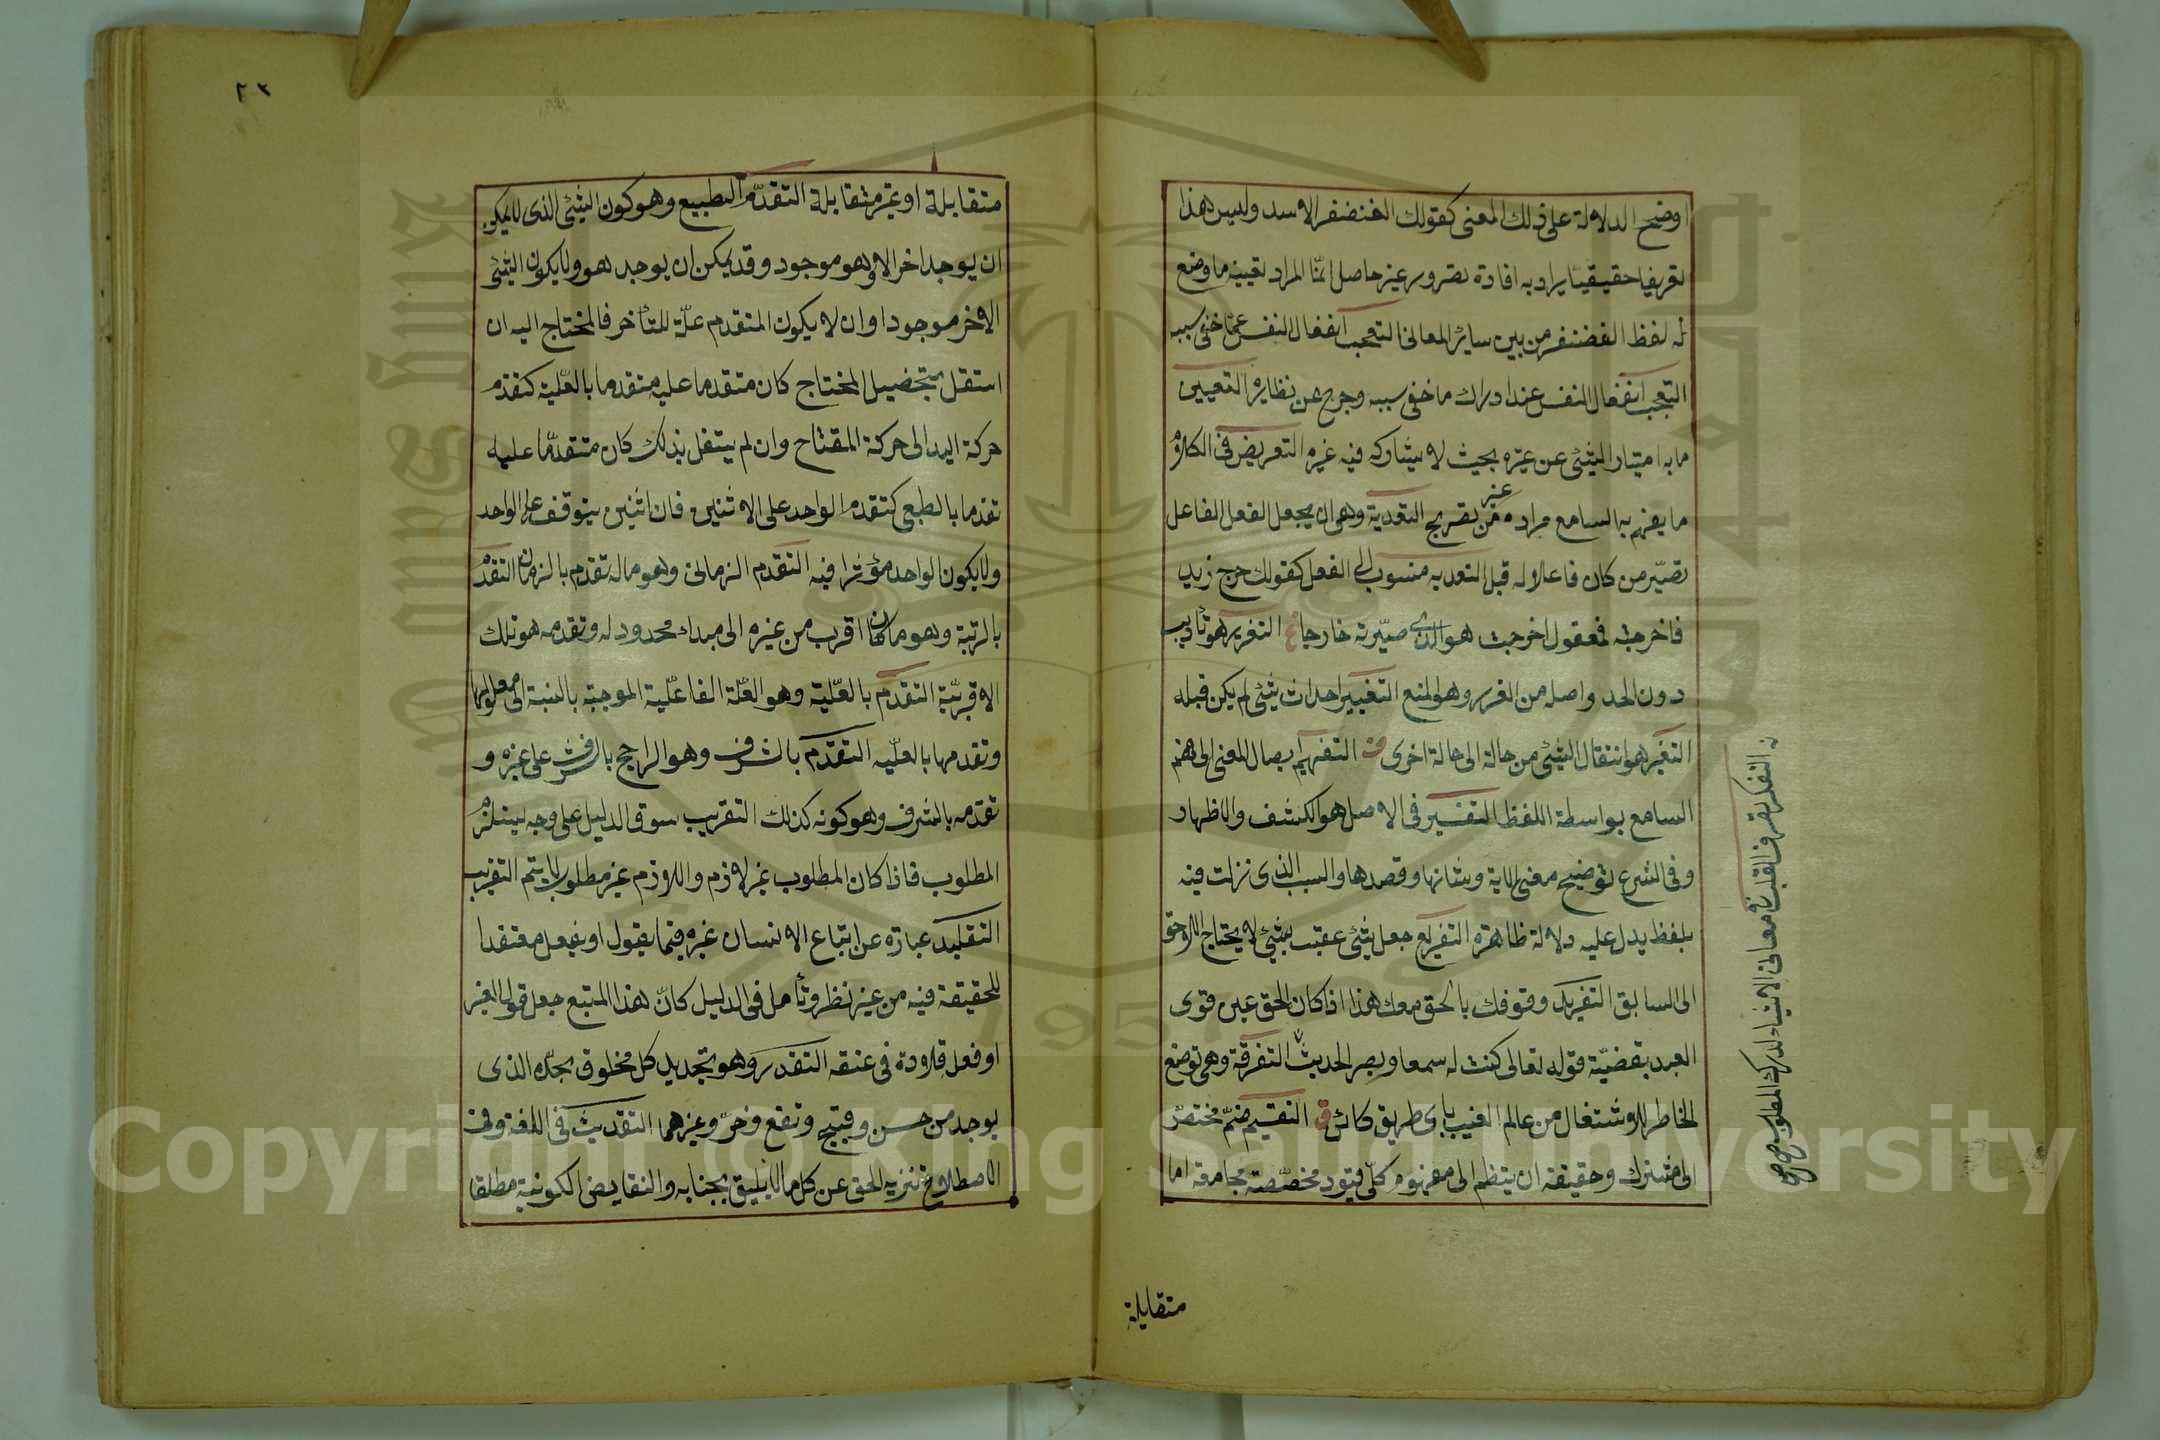 اوضح الدلالة على ذلك المعنى كقولك الغضنفر الاسد وليس هذا
تعريفا حقيقيا يراد به افادة تصور غير حاصل انما المراد تعيين ما وضع
له لفظ الغضنفر من بين سائر المعانى التعجب انفعال النفس عما خفى سببه
التعجب انفعال النفس عند ادراك ما خفى سببه وخرج عن نظايره التعيين
ما به امتياز الشئ عن غيره بحيث لا يشاركه فيه غيره التعريض فى الكلام
ما يفهم به السامع مراده من غير تصريح التعدية وهى ان يجعل الفعل الفاعل
تصيّر من كان فاعلا له قبل التعديه منسوب الى الفعل كقولك خرج زيد
فاخرجته فمفعول اخرجت هو الذى صيّرته خارجا غ التعزير هو تأديب
دون الحد واصله من العزر وهو المنع التغيير احداث شئ لم يكن قبله
التغير هو انتقال الشئ من حالة الى حالة اخرى ف التفهيم ايصال المعنى الى فهم
السامع بواسطة اللفظ التفسير فى الاصل هو الكشف والاظهار
وفى الشرع توضيح معنى الاية وشانها وقصدها والسبب الذى نزلت فيه
بلفظ يدل عليه دلالة ظاهرة التفريع جعل شئ عقيب شئ لا يحتاج اللاحق
الى السابق التفريد وقوفك بالحق معك هذا اذا كان الحق عين قوى
العبد بقضيّة قوله تعالى كنت له سمعا وبصرا الحديث التفرقة وهى توضع
الخاطر للاشتغال من عالم الغيب باى طريق كان ق التقسيم ضمّ مختصّ
الى مشترك وحقيقته ان ينظم الى مفهوم كلّى قيود مخصّصة مجامعة اما
متقابلة
نه التفكر تصرف القلب فى معانى الاشياء لدرك المطلوب صح صح
٢٣
متقابلة او غير متقابلة التقدّم الطبيع وهو كون الشئ الذى لا يمكن
ان يوجد اخر الا وهو موجود وقد يمكن ان يوجد هو ولا يكون الشئ
الاخر موجودا وان لا يكون المتقدم علّة للمتأخر فالمحتاج اليه ان
استقل بتحصيل المحتاج كان متقدما عليه متقدما بالعلّية كتقدم
حركة اليد الى حركة المفتاح وان لم يستقل بذلك كان متقدّما عليه
تقدما بالطبع كتقدم الواحد على الاثنين فان اثنين يتوقف على الواحد
ولا يكون الواحد مؤثرا فيه التقدم الزمانى وهو ماله تقدم بالزمان التقدم
بالرتبة وهو ما كان اقرب من غيره الى مبداء محدود له وتقدمه هو تلك
الاقربيّة التقدم بالعلّية وهو العلّة الفاعليّة الموجبة بالنسبة الى معلولها
وتقدمها بالعليّه التقدّم بالشرف وهو الراجح بالشرف على غيره و
تقدمه بالشرف وهو كونه كذلك التقريب سوق الدليل على وجه يستلزم
المطلوب فاذا كان المطلوب غير لازم واللازم غير مطلوب لا يتم التقريب
التقليد عبارة عن اتباع الانسان غيره فيما يقول او يفعل معتقدا
للحقيقة فيه من غير نظر وتأمل فى الدليل كانّ هذا المتبع جعل قول الغير
او فعل قلادة فى عنقه التقدير وهو تحديد كل مخلوق بحدّه الذى
يوجد من حسن وقبيح ونفع وضرّ وغيرهما التقديث فى اللغة وفى
الاصطلاح تنزيه الحق عن كل ما لا يليق بجنابه والنقايص الكونية مطلقا